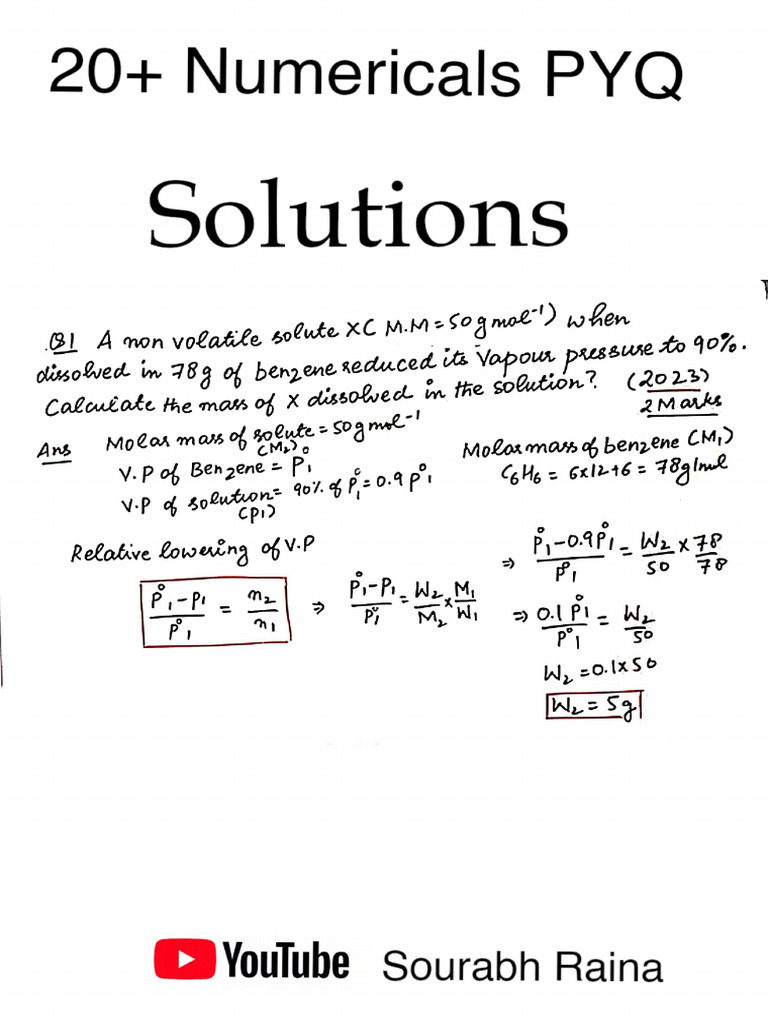 20+ Numericals PYQ
Solutions
Q1 A non volatile solute X( M.M = 50 g mol⁻¹) when
dissolved in 78g of benzene reduced its vapour pressure to 90%.
Calculate the mass of X dissolved in the solution? (2023)
2 Marks
Ans Molar mass of solute = 50 g mol⁻¹
(M₂)
V.P of Benzene = P°₁
V.P of solution = 90% of P°₁ = 0.9 P°₁
(P₁)
Molar mass of benzene (M₁)
C₆H₆ = 6x12+6 = 78g/mol
Relative lowering of V.P
(P°₁ - P₁)/P°₁ = n₂/n₁ ⇒ (P°₁ - P₁)/P°₁ = W₂/M₂ x M₁/W₁
⇒ (P°₁ - 0.9P°₁)/P°₁ = W₂/50 x 78/78
⇒ 0.1 P°₁/P°₁ = W₂/50
W₂ = 0.1 x 50
W₂ = 5g
YouTube Sourabh Raina